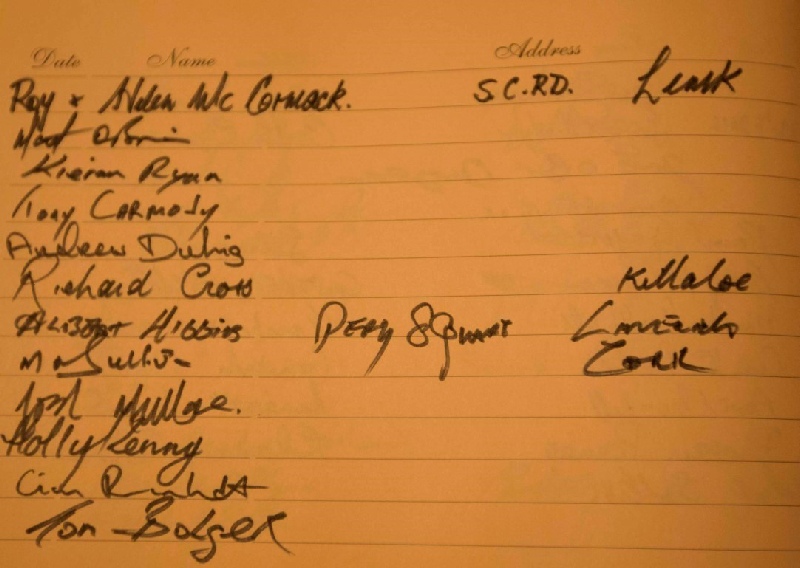 Date Name Address
Roy & Helen Mc Cormack. S.C.RD. Limk
Matt O'Brien
Kieran Ryan
Tony CARMODY
Andrew Duhig
Richard Cross Killaloe
Higgins PERY SQUARE Limerick
M O'Sullivan CORK
Holly Kenny
Cian
Tom Bolger